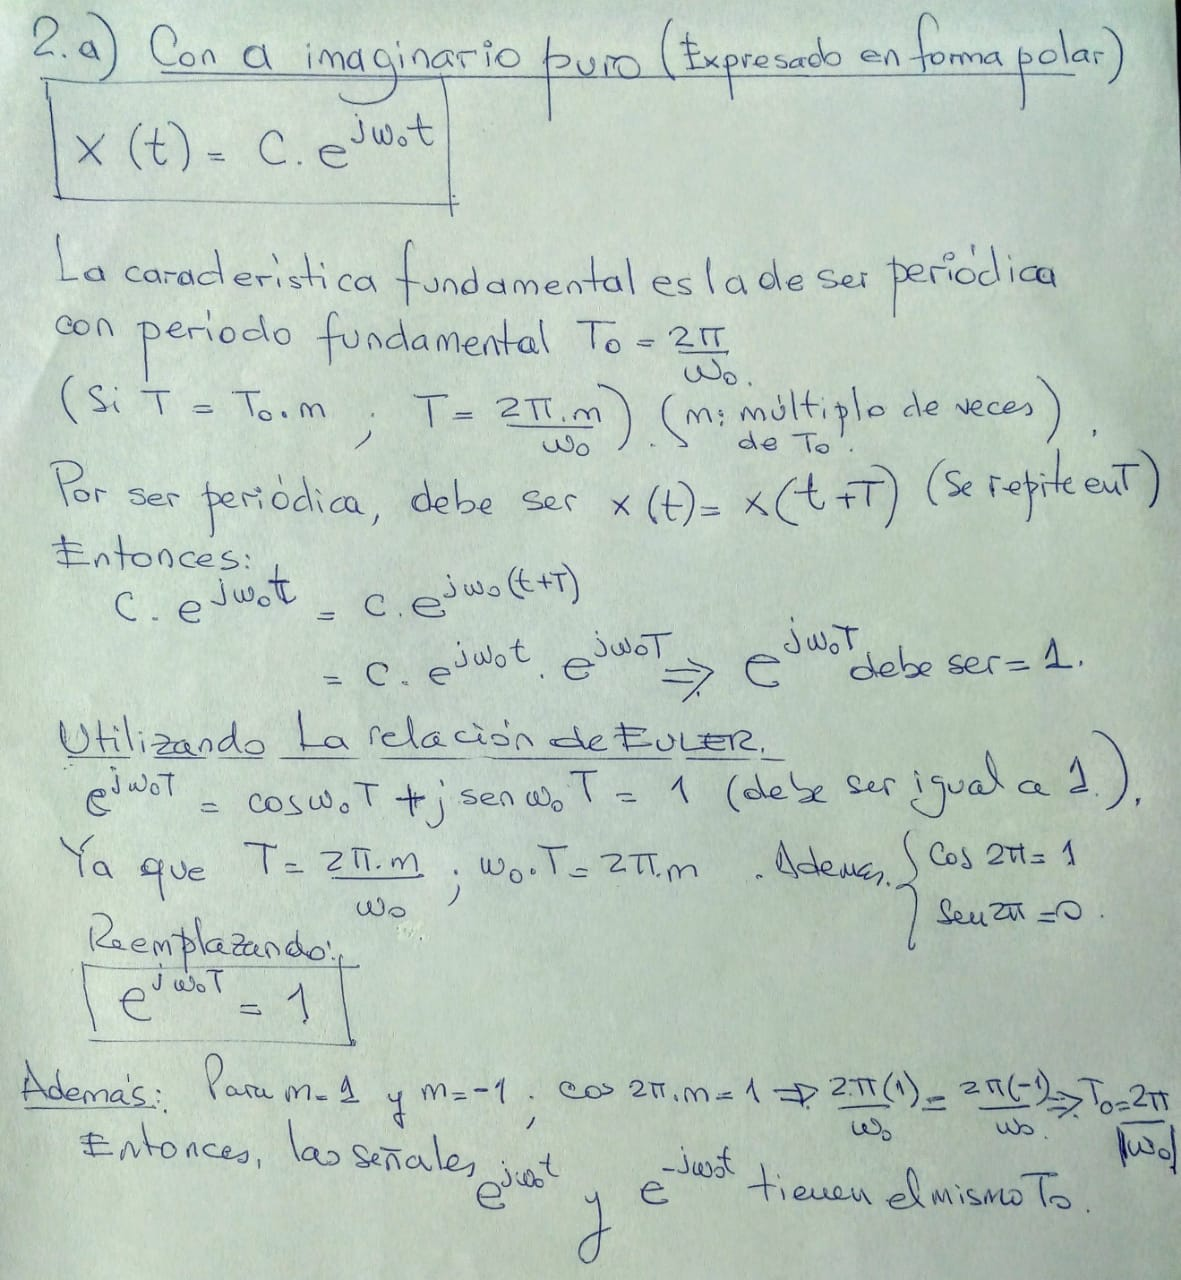 2.a) Con a imaginario puro (Expresado en forma polar)
x(t) = C.e^jω₀t
La caracteristica fundamental es la de ser periódica
con periodo fundamental T₀ = 2π/ω₀.
(Si T = T₀.m ; T = 2π.m/ω₀). (m: múltiplo de veces de T₀).
Por ser periódica, debe ser x(t) = x(t+T) (Se repite en T)
Entonces:
C.e^jω₀t = C.e^jω₀(t+T)
= C.e^jω₀t.e^jω₀T ⇒ e^jω₀T debe ser = 1.
Utilizando La relación de EULER.
e^jω₀T = cos ω₀T + j sen ω₀T = 1 (debe ser igual a 1.).
Ya que T = 2π.m/ω₀ ; ω₀.T = 2π.m . Ademas. { Cos 2π = 1
Sen 2π = 0 .
Reemplazando:
e^jω₀T = 1
Además: Para m = 1 y m = -1 ; cos 2π.m = 1 ⇒ 2π(1)/ω₀ = 2π(-1)/ω₀. ⇒ T₀ = 2π/|ω₀|
Entonces, las señales e^jω₀t y e^-jω₀t tienen el mismo T₀.